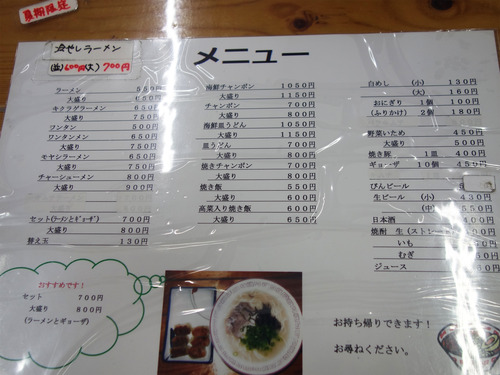 夏期限定
冷やしラーメン
(並)600円(大)700円
メニュー
ラーメン 550円
大盛り
キクラゲラーメン 650円
大盛り 750円
ワンタン 500円
ワンタンメン 650円
大盛り 750円
モヤシラーメン 650円
大盛り 750円
チャーシューメン 800円
大盛り 900円
セット(ラーメンとギョーザ) 700円
大盛り 800円
替え玉 130円
海鮮チャンポン 1050円
大盛り 1150円
チャンポン 700円
大盛り 800円
海鮮皿うどん 1050円
大盛り 1150円
皿うどん 700円
大盛り 800円
焼きチャンポン 700円
大盛り 800円
焼き飯 550円
大盛り 600円
高菜入り焼き飯 600円
大盛り 650円
白めし (小) 130円
(大) 160円
おにぎり 1個 100円
(ふりかけ) 2個 180円
野菜いため 450円
大盛り 500円
焼き豚 1皿 400円
ギョーザ 10個 450円
びんビール
生ビール (小) 430円
(中)
日本酒
焼酎 生(ストレート)
いも
むぎ
ジュース
おすすめです!
セット 700円
大盛り 800円
(ラーメンとギョーザ)
お持ち帰りできます!
お尋ねください。